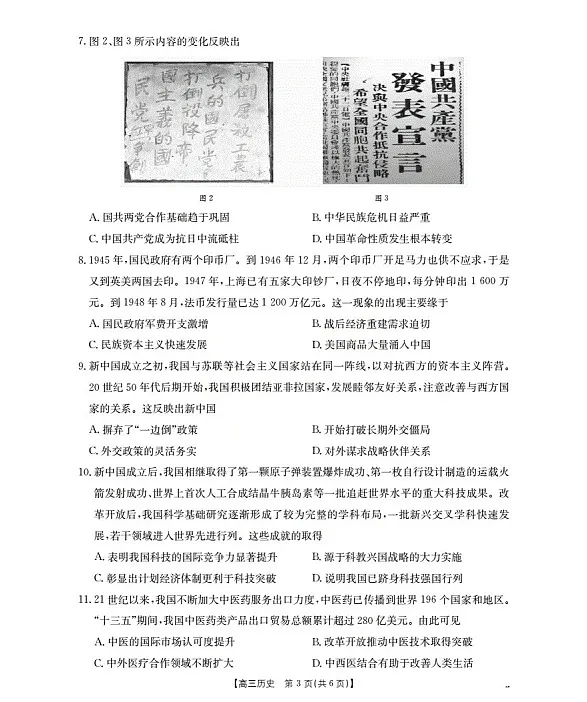 7. 图 2、图 3 所示内容的变化反映出
打倒屠殺工農
兵的國民党
打倒投降帝
國主義的國
民党
中國共產黨
發表宣言
決與中央合作抵抗侵略
希望全國同胞共起奮鬥
图 2
图 3
A. 国共两党合作基础趋于巩固
B. 中华民族危机日益严重
C. 中国共产党成为抗日中流砥柱
D. 中国革命性质发生根本转变
8. 1945 年,国民政府有两个印币厂。到 1946 年 12 月,两个印币厂开足马力也供不应求,于是
又到英美两国去印。1947 年,上海已有五家大印钞厂,日夜不停地印,每分钟印出 1 600 万
元。到 1948 年 8 月,法币发行量已达 1 200 万亿元。这一现象的出现主要缘于
A. 国民政府军费开支激增
B. 战后经济重建需求迫切
C. 民族资本主义快速发展
D. 美国商品大量涌入中国
9. 新中国成立之初,我国与苏联等社会主义国家站在同一阵线,以对抗西方的资本主义阵营。
20 世纪 50 年代后期开始,我国积极团结亚非拉国家,发展睦邻友好关系,注意改善与西方国
家的关系。这反映出新中国
A. 摒弃了“一边倒”政策
B. 开始打破长期外交僵局
C. 外交政策的灵活务实
D. 对外谋求战略伙伴关系
10. 新中国成立后,我国相继取得了第一颗原子弹装置爆炸成功、第一枚自行设计制造的运载火
箭发射成功、世界上首次人工合成结晶牛胰岛素等一批追赶世界水平的重大科技成果。改
革开放后,我国科学基础研究逐渐形成了较为完整的学科布局,一批新兴交叉学科快速发
展,若干领域进入世界先进行列。这些成就的取得
A. 表明我国科技的国际竞争力显著提升
B. 源于科教兴国战略的大力实施
C. 彰显出计划经济体制更利于科技突破
D. 说明我国已跻身科技强国行列
11. 21 世纪以来,我国不断加大中医药服务出口力度,中医药已传播到世界 196 个国家和地区。
“十三五”期间,我国中医药类产品出口贸易总额累计超过 280 亿美元。由此可见
A. 中医的国际市场认可度提升
B. 改革开放推动中医技术取得突破
C. 中外医疗合作领域不断扩大
D. 中西医结合有助于改善人类生活
【高三历史 第 3 页(共 6 页)】